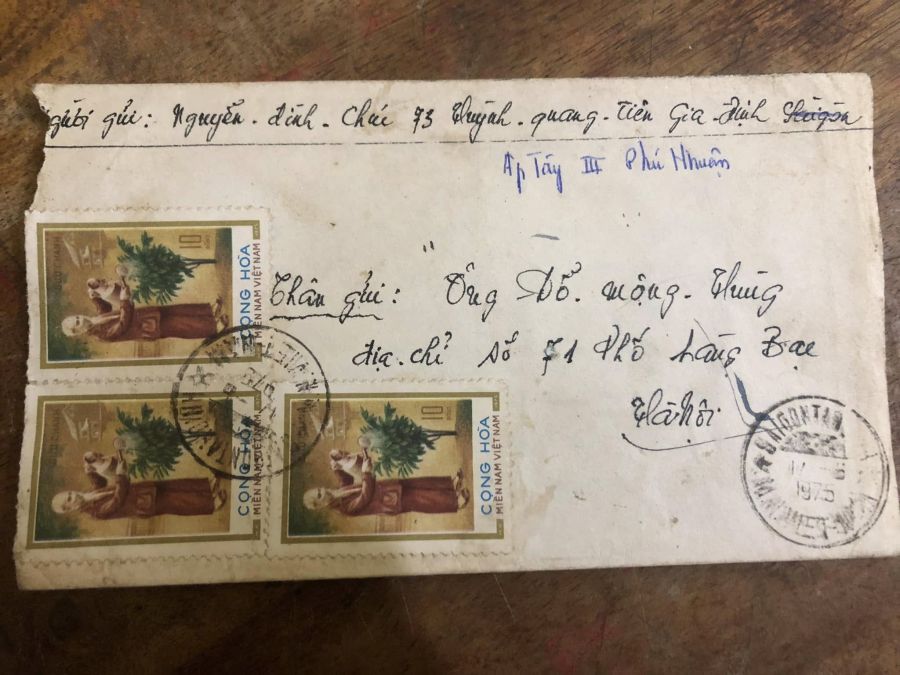 Người gửi: Nguyễn. đình. Chúc 73 Huỳnh. quang. Tiên Gia. Định Sàigòn
Ấp Tây III Phú Nhuận
Thân gửi: Ông Đỗ. mộng. Hùng
Địa. chỉ số 71 Phố hàng Bạc
Hà nội
10 ĐỒNG
CỘNG HÒA
MIỀN NAM VIỆT NAM
10 ĐỒNG
CỘNG HÒA
MIỀN NAM VIỆT NAM
10 ĐỒNG
CỘNG HÒA
MIỀN NAM VIỆT NAM
1975